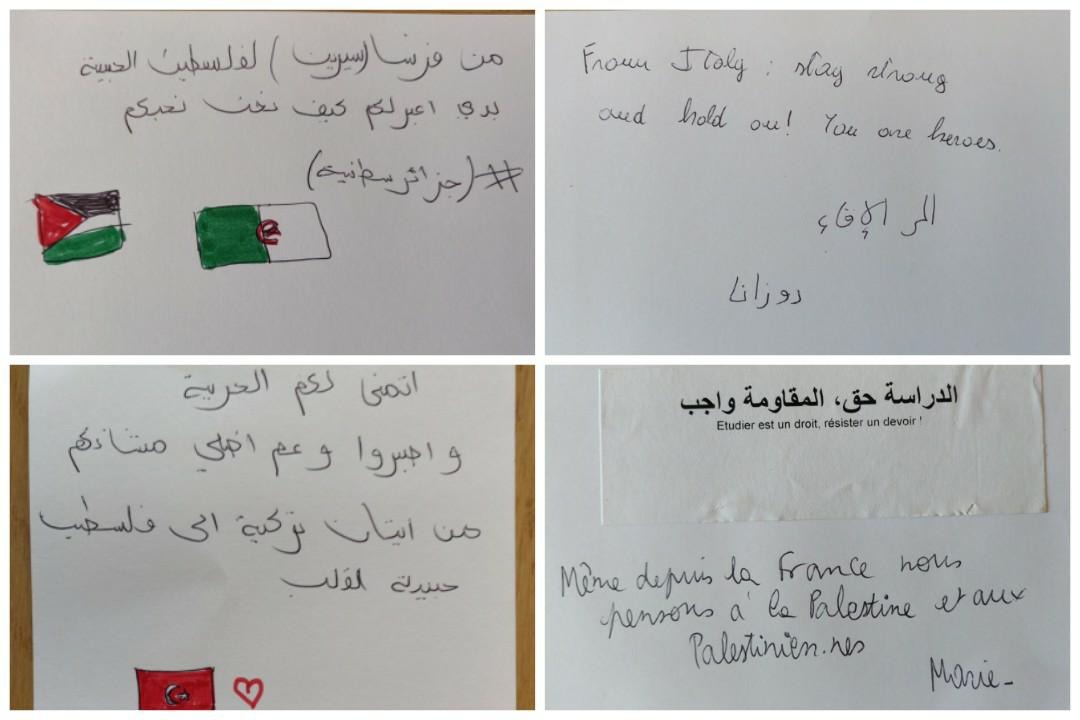 من فرنسا (سيرين) لفلسطين الحبيبة
بدي اعبرلكم كيف نحن نحبكم
#(جزائرسطنية)
From Italy : stay strong
and hold on! You are heroes.
الى الإقاء
روزانا
اتمنى لكم الحرية
واصبروا وعم اصلي مشانكم
من ايتان تركية الى فلسطين
حبيبة القلب
الدراسة حق، المقاومة واجب
Etudier est un droit, résister un devoir !
Même depuis la France nous
pensons à la Palestine et aux
Palestinien.nes
Marie-